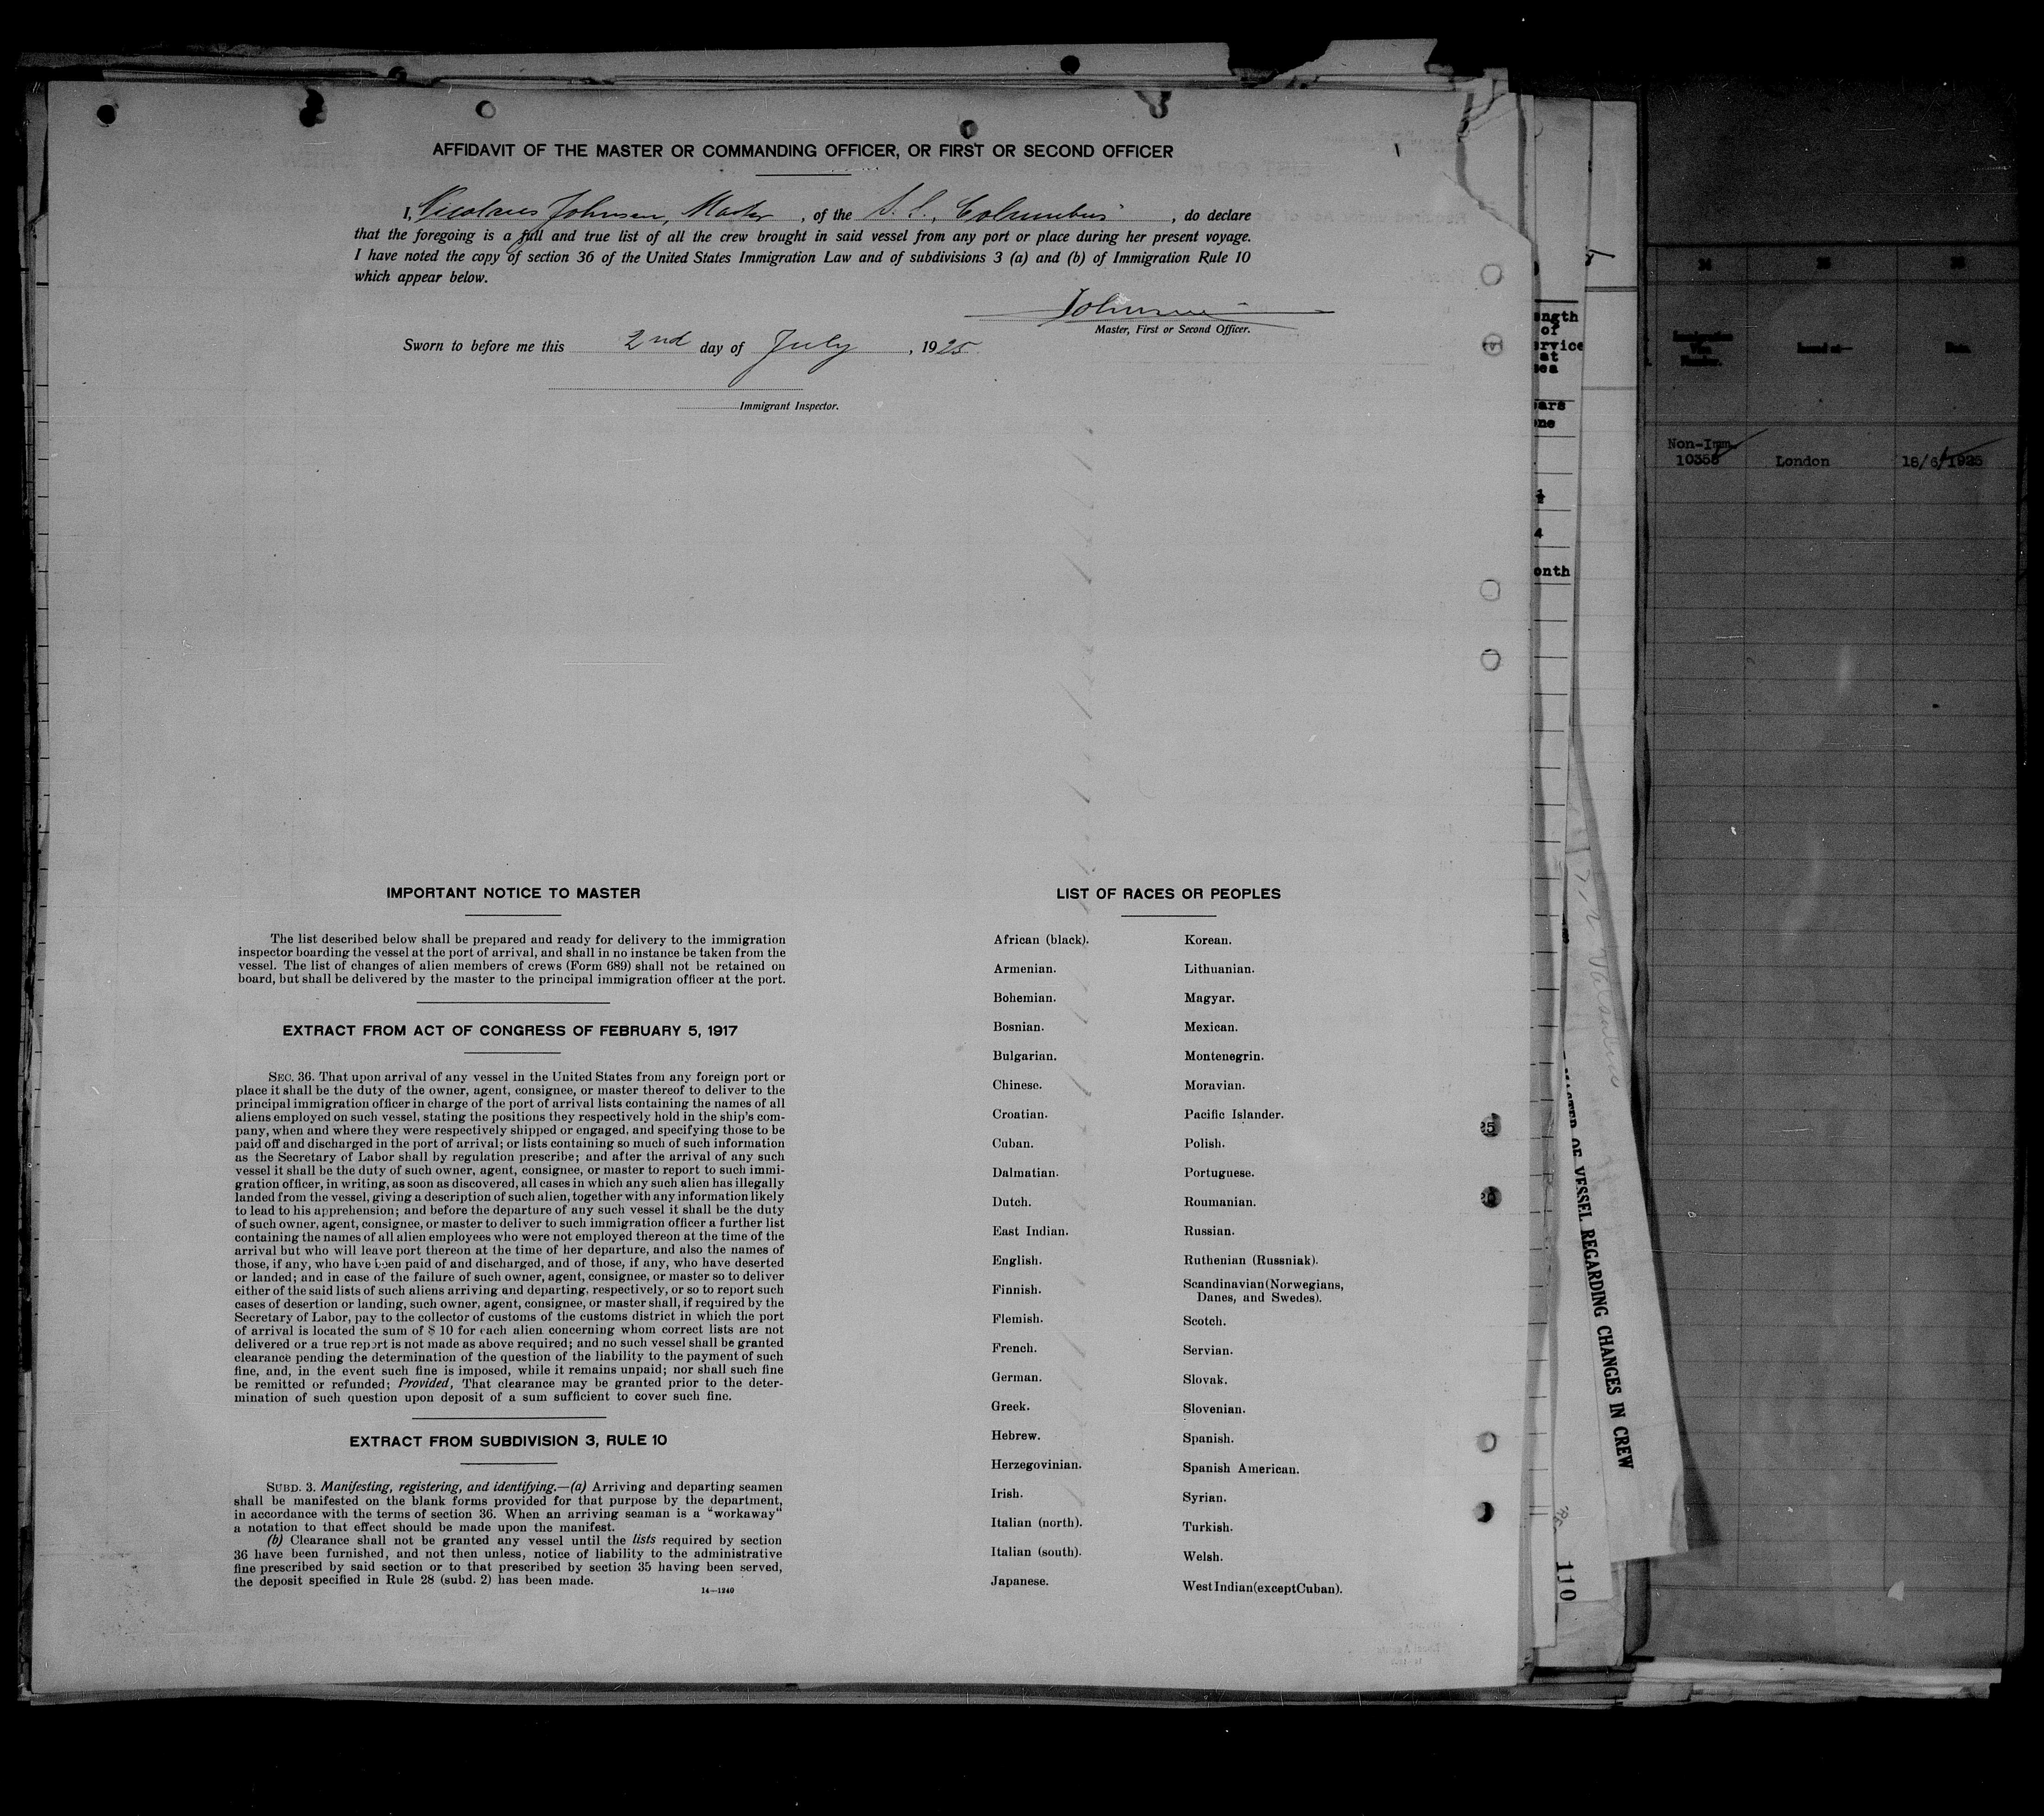 AFFIDAVIT OF THE MASTER OR COMMANDING OFFICER, OR FIRST OR SECOND OFFICER
I, Nicolaus Johnsen, Master, of the S. S. "Columbus", do declare
that the foregoing is a full and true list of all the crew brought in said vessel from any port or place during her present voyage.
I have noted the copy of section 36 of the United States Immigration Law and of subdivisions 3 (a) and (b) of Immigration Rule 10
which appear below.
Johnsen
Master, First or Second Officer.
Sworn to before me this 2nd day of July, 1925
Immigrant Inspector.
IMPORTANT NOTICE TO MASTER
The list described below shall be prepared and ready for delivery to the immigration
inspector boarding the vessel at the port of arrival, and shall in no instance be taken from the
vessel. The list of changes of alien members of crews (Form 689) shall not be retained on
board, but shall be delivered by the master to the principal immigration officer at the port.
EXTRACT FROM ACT OF CONGRESS OF FEBRUARY 5, 1917
SEC. 36. That upon arrival of any vessel in the United States from any foreign port or
place it shall be the duty of the owner, agent, consignee, or master thereof to deliver to the
principal immigration officer in charge of the port of arrival lists containing the names of all
aliens employed on such vessel, stating the positions they respectively hold in the ship's com-
pany, when and where they were respectively shipped or engaged, and specifying those to be
paid off and discharged in the port of arrival; or lists containing so much of such information
as the Secretary of Labor shall by regulation prescribe; and after the arrival of any such
vessel it shall be the duty of such owner, agent, consignee, or master to report to such immi-
gration officer, in writing, as soon as discovered, all cases in which any such alien has illegally
landed from the vessel, giving a description of such alien, together with any information likely
to lead to his apprehension; and before the departure of any such vessel it shall be the duty
of such owner, agent, consignee, or master to deliver to such immigration officer a further list
containing the names of all alien employees who were not employed thereon at the time of the
arrival but who will leave port thereon at the time of her departure, and also the names of
those, if any, who have been paid of and discharged, and of those, if any, who have deserted
or landed; and in case of the failure of such owner, agent, consignee, or master so to deliver
either of the said lists of such aliens arriving and departing, respectively, or so to report such
cases of desertion or landing, such owner, agent, consignee, or master shall, if required by the
Secretary of Labor, pay to the collector of customs of the customs district in which the port
of arrival is located the sum of $ 10 for each alien concerning whom correct lists are not
delivered or a true report is not made as above required; and no such vessel shall be granted
clearance pending the determination of the question of the liability to the payment of such
fine, and, in the event such fine is imposed, while it remains unpaid; nor shall such fine
be remitted or refunded; Provided, That clearance may be granted prior to the deter-
mination of such question upon deposit of a sum sufficient to cover such fine.
EXTRACT FROM SUBDIVISION 3, RULE 10
SUBD. 3. Manifesting, registering, and identifying.—(a) Arriving and departing seamen
shall be manifested on the blank forms provided for that purpose by the department,
in accordance with the terms of section 36. When an arriving seaman is a "workaway"
a notation to that effect should be made upon the manifest.
(b) Clearance shall not be granted any vessel until the lists required by section
36 have been furnished, and not then unless, notice of liability to the administrative
fine prescribed by said section or to that prescribed by section 35 having been served,
the deposit specified in Rule 28 (subd. 2) has been made.
14—1240
LIST OF RACES OR PEOPLES
African (black).
Armenian.
Bohemian.
Bosnian.
Bulgarian.
Chinese.
Croatian.
Cuban.
Dalmatian.
Dutch.
East Indian.
English.
Finnish.
Flemish.
French.
German.
Greek.
Hebrew.
Herzegovinian.
Irish.
Italian (north).
Italian (south).
Japanese.
Korean.
Lithuanian.
Magyar.
Mexican.
Montenegrin.
Moravian.
Pacific Islander.
Polish.
Portuguese.
Roumanian.
Russian.
Ruthenian (Russniak).
Scandinavian (Norwegians,
Danes, and Swedes).
Scotch.
Servian.
Slovak.
Slovenian.
Spanish.
Spanish American.
Syrian.
Turkish.
Welsh.
West Indian (except Cuban).
ength
of
ervice
at
sea
ears
one
½
4
onth
25
OF VESSEL REGARDING CHANGES IN CREW
110
24
25
26
Immigration
Visa
Number.
Issued at—
Date.
Non-Imm.
10358
London
18/6/1925